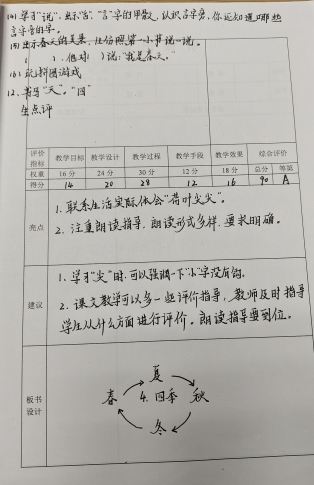 (4) 学习"说",出示"舌"、"言"字的甲骨文,认识言字旁,你还知道哪些
言字旁的字。
(5) 出示春天的美景,让仿照第一小节说一说。
( ),他对( )说:"我是春天。"
(6) 玩拼图游戏
12、书写"天"、"四"
生点评
评价指标 教学目标 教学设计 教学过程 教学手段 教学效果 综合评价
权重 16分 24分 30分 12分 18分 总分 等第
得分 14 20 28 12 16 90 A
亮点
1. 联系生活实际体会"荷叶尖尖"。
2. 注重朗读指导,朗读形式多样,要求明确。
建议
1. 学习"尖"时,可以强调一下"小"字没有钩。
2. 课文教学可以多一些评价指导,教师及时指导
学生从什么方面进行评价。朗读指导要到位。
板书设计
夏
春 4.四季 秋
冬